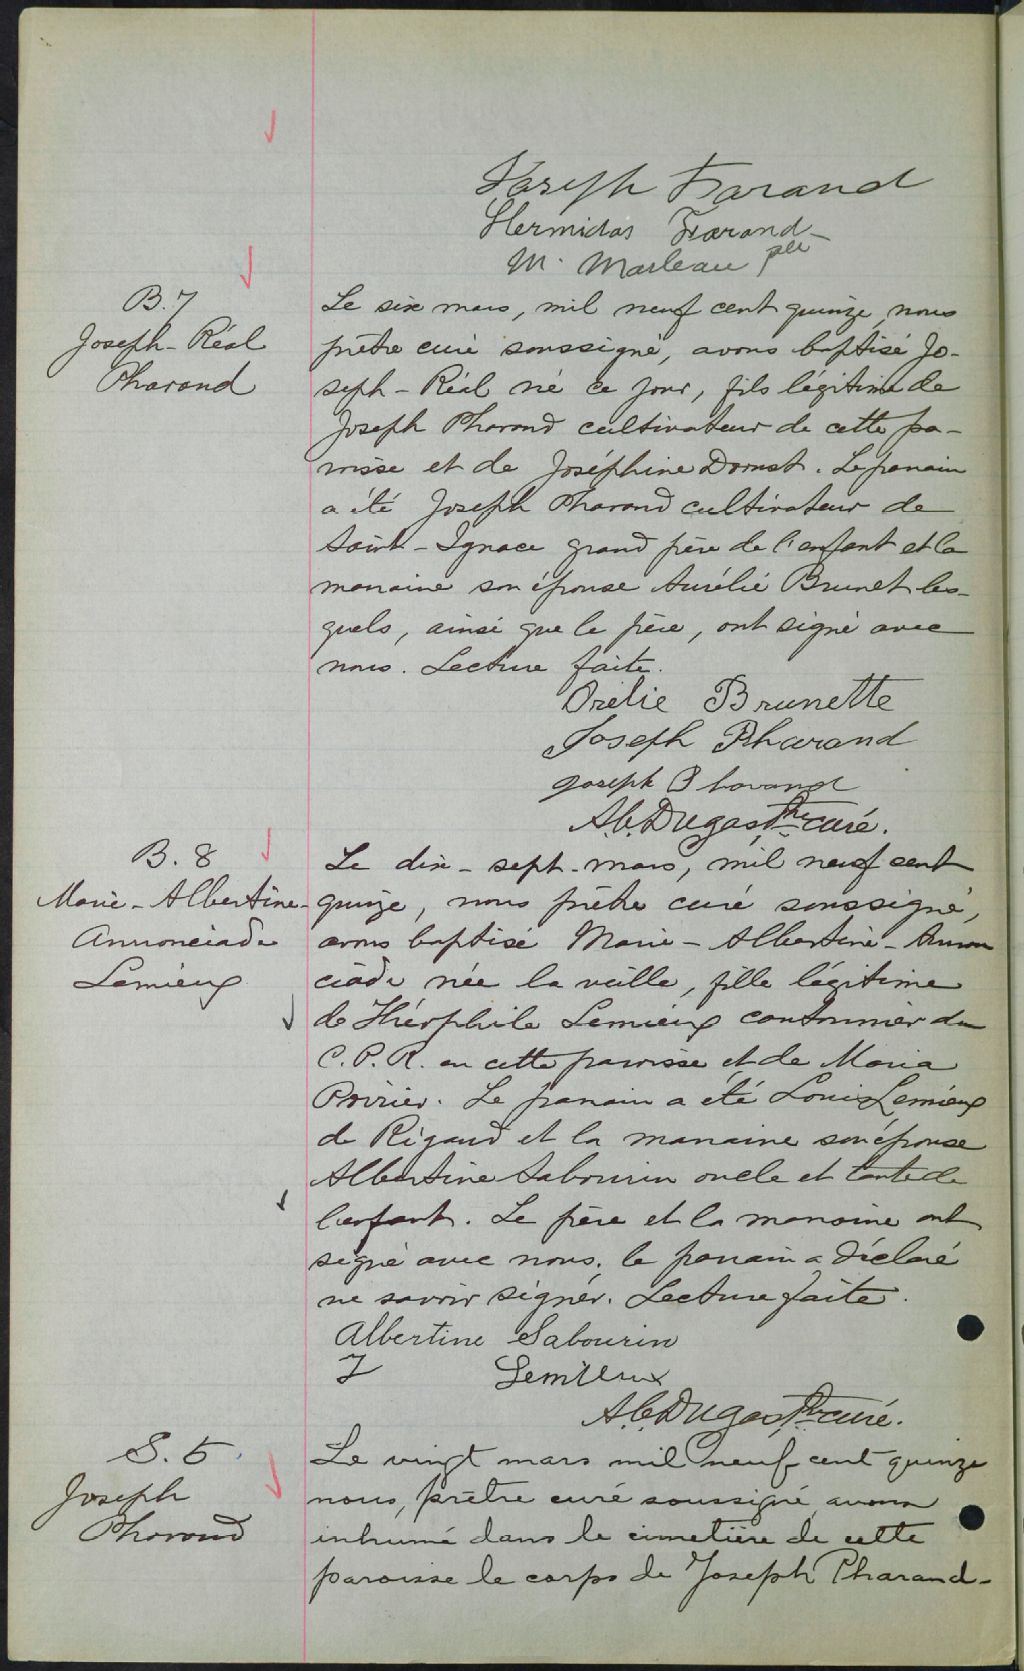 Joseph Farand
Hermidas Farand
M. Marleau ptr
B. 7
Joseph-Réal
Pharand
Le six mars, mil neuf cent quinze, nous
prêtre curé soussigné, avons baptisé Jo-
seph-Réal né ce jour, fils légitime de
Joseph Pharand cultivateur de cette pa-
roisse et de Joséphine. Le parrain
a été Joseph Pharand cultivateur de
Saint-Ignace grand père de l'enfant et la
marraine son épouse Aurélie Brunet les-
quels, ainsi que le père, ont signé avec
nous. Lecture faite.
Orelie Brunette
Joseph Pharand
Joseph Pharand
Ab. Dugas Ptre curé.
B. 8
Marie-Albertine-
Annonciade
Lemieux
Le dix-sept-mars, mil neuf cent
quinze, nous prêtre curé soussigné,
avons baptisé Marie-Albertine-Annon
ciade née la veille, fille légitime
de Théophile Lemieux cantonnier du
C. P. R. en cette paroisse et de Maria
Poirier. Le parrain a été Louis Lemieux
de Rigaud et la marraine son épouse
Albertine Sabourin oncle et tante de
l'enfant. Le père et la marraine ont
signé avec nous. le parrain a déclaré
ne savoir signer. Lecture faite.
Albertine Sabourin
T Lemieux
Ab. Dugas Ptre curé.
S. 5
Joseph
Pharand
Le vingt mars mil neuf cent quinze
nous, prêtre curé soussigné avons
inhumé dans le cimetière de cette
paroisse le corps de Joseph Pharand-